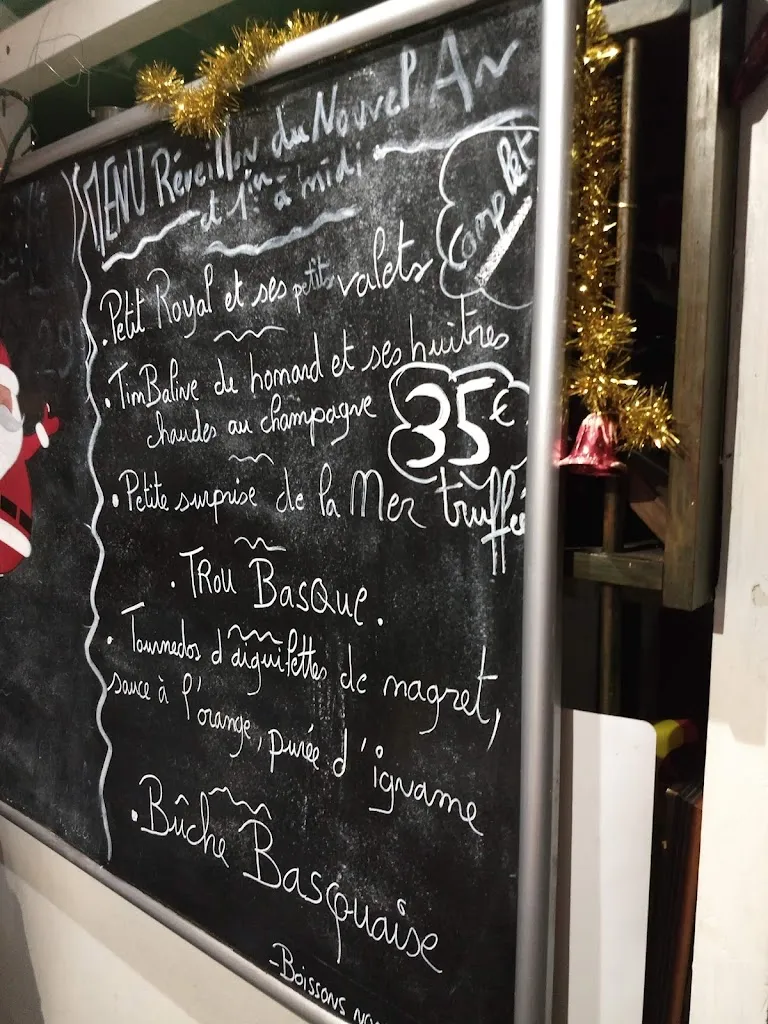 MENU Réveillon du Nouvel An
et 1er à midi
Complet
. Petit Royal et ses petits valets
. TimBaline de homard et ses huitres
chaudes au champagne
35€
. Petite surprise de la Mer truffée
. TRou BasQue.
. Tournedos d'aiguillettes de magret,
sauce à l'orange, purée d'igname
. Bûche Basquaise
- Boissons